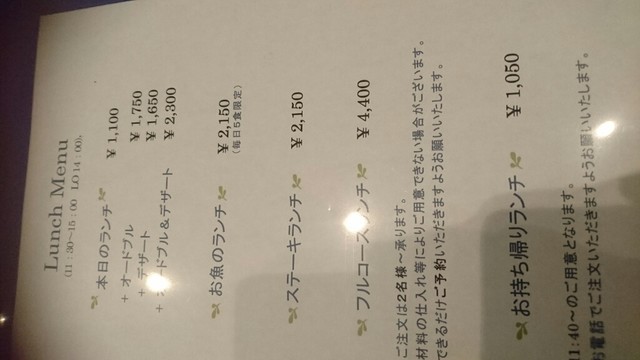 Lunch Menu
(11：30～15：00 LO 14：00)
本日のランチ ￥1,100
+ オードブル ￥1,750
+ デザート ￥1,650
+ オードブル＆デザート ￥2,300
お魚のランチ ￥2,150
(毎日5食限定)
ステーキランチ ￥2,150
フルコースランチ ￥4,400
ご注文は2名様～承ります。
材料の仕入れ等によりご用意できない場合がございます。
できるだけご予約いただきますようお願いいたします。
お持ち帰りランチ ￥1,050
11:40～のご用意となります。
お電話でご注文いただきますようお願いいたします。